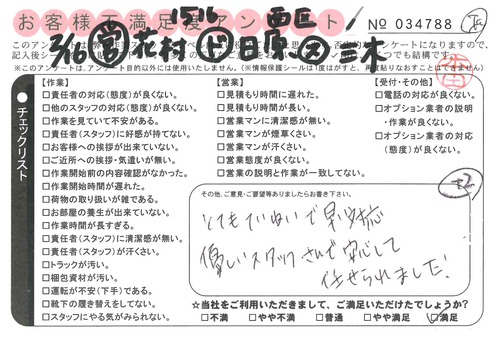 お客様不満足度アンケート
№ 034788
1516 西区
3/16 営 花村 ド 日原 ス 三木
※このアンケートは、アンケート目的以外には使用いたしません。(※情報保護シールは1度はがすと、再度貼りなおすことはできません)
チェックリスト
【作業】
□責任者の対応(態度)が良くない。
□他のスタッフの対応(態度)が良くない。
□作業を見ていて不安がある。
□責任者(スタッフ)に好感が持てない。
□お客様への挨拶が出来ていない。
□ご近所への挨拶・気遣いが無い。
□作業開始前の内容確認がなかった。
□作業開始時間が遅れた。
□荷物の取り扱いが雑である。
□お部屋の養生が出来ていない。
□作業時間が長すぎる。
□責任者(スタッフ)に清潔感が無い。
□責任者(スタッフ)が汗くさい。
□トラックが汚い。
□梱包資材が汚い。
□運転が不安(下手)である。
□靴下の履き替えをしてない。
□スタッフにやる気がみられない。
【営業】
□見積もり時間に遅れた。
□見積もり時間が長い。
□営業マンに清潔感が無い。
□営業マンが煙草くさい。
□営業マンが汗くさい。
□営業態度が良くない。
□営業の説明と作業が一致してない。
【受付・その他】
□電話の対応が良くない。
□オプション業者の説明
・作業が良くない。
□オプション業者の対応
(態度)が良くない。
その他、ご意見・ご要望等ありましたらお書き下さい。
とてもていねいで早い対応
優しいスタッフさんで安心して
任せられました!
☆当社をご利用いただきまして、ご満足いただけたでしょうか?
□不満 □やや不満 □普通 □やや満足 ☑満足